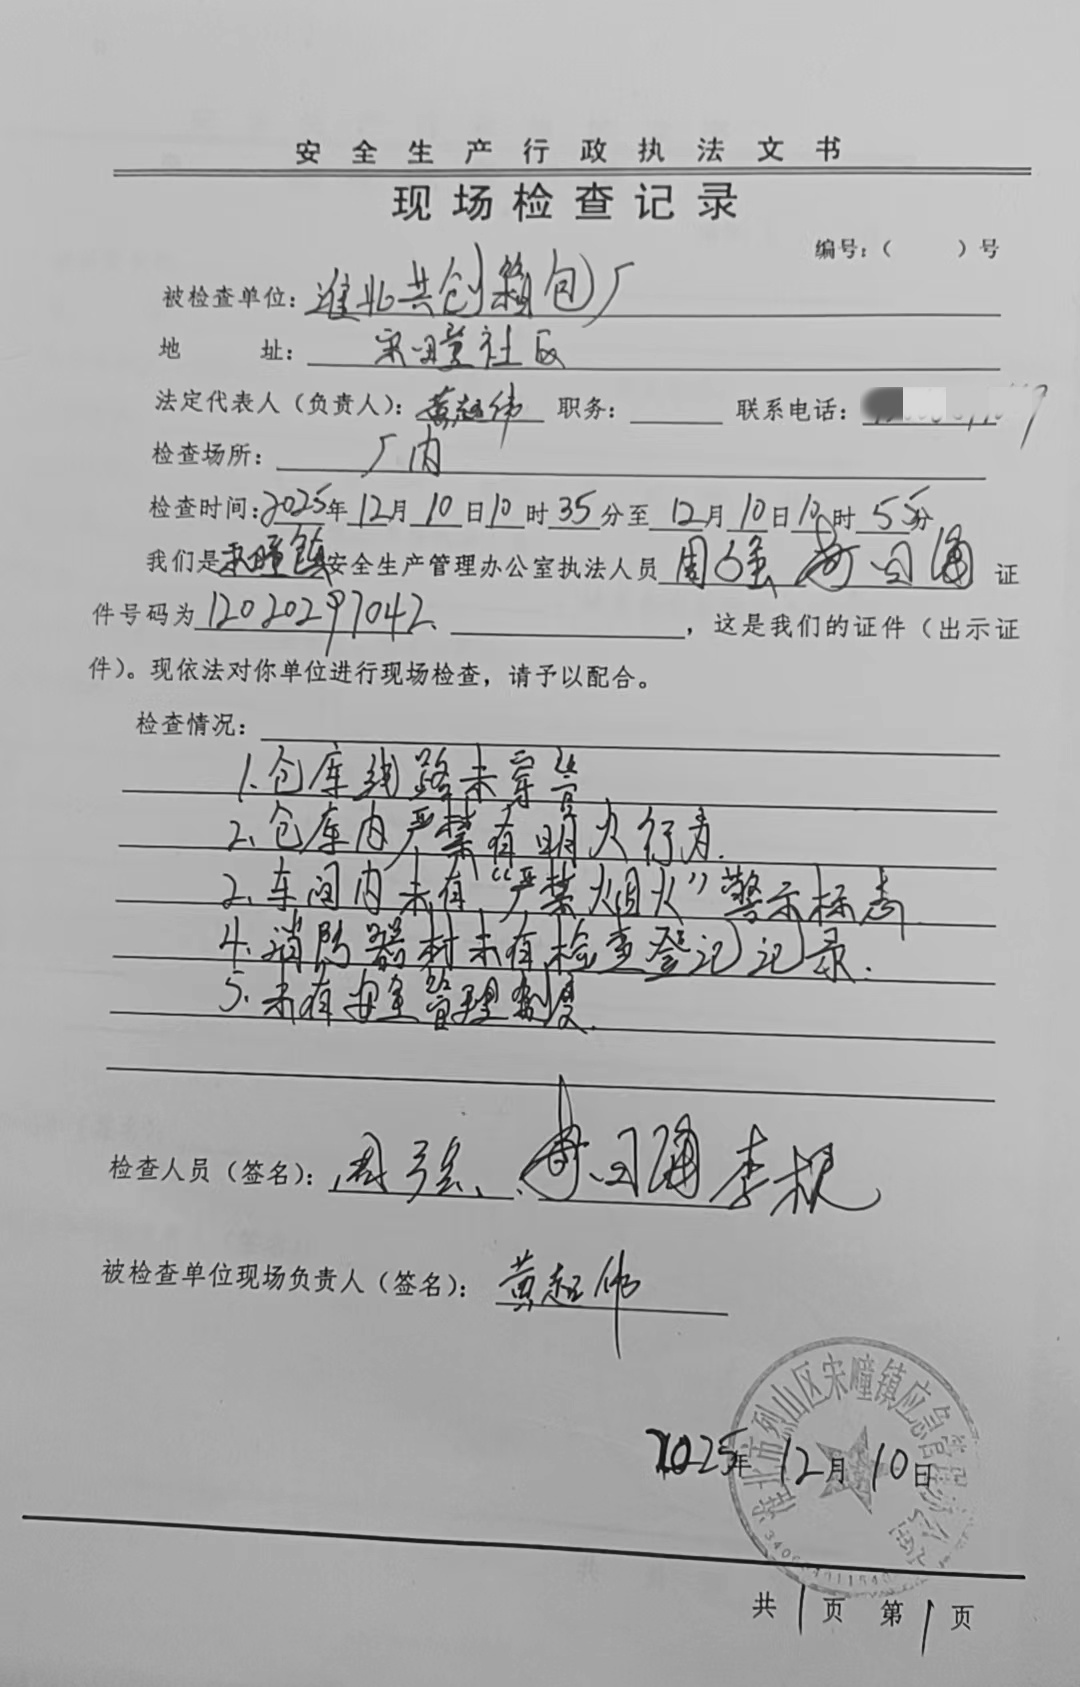 安全生产行政执法文书
现场检查记录
编号：（ ）号
被检查单位：淮北共创箱包厂
地 址：宋疃社区
法定代表人（负责人）：黄超伟 职务： 联系电话：
检查场所：厂内
检查时间：2025年12月10日10时35分至12月10日10时55分
我们是宋疃镇安全生产管理办公室执法人员周强 证
件号码为12020297042、 ，这是我们的证件（出示证
件）。现依法对你单位进行现场检查，请予以配合。
检查情况：
1.仓库线路未穿管
2.仓库内严禁有明火行为.
2.车间内未有“严禁烟火”警示标志.
4.消防器材未有检查登记记录.
5.未有安全管理制度.
检查人员（签名）：周强、 李根
被检查单位现场负责人（签名）：黄超伟
淮北市烈山区宋疃镇应急管理办公室
2025年12月10日
共1页 第1页